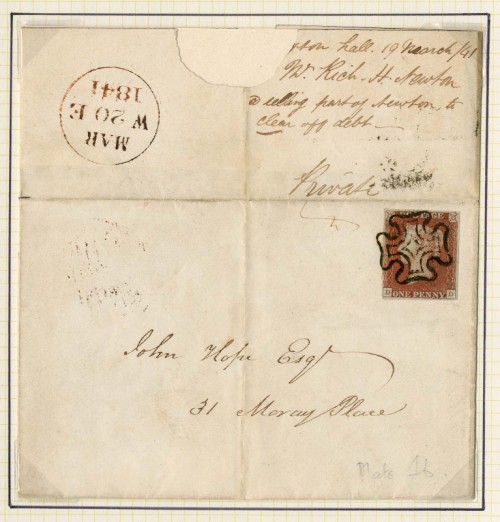 hall. 19 March/41
Mr. Rich. H. Newton
selling part of Newton, to
clear off debt
Private
MAR
W 20 E
1841
POSTAGE
D D
ONE PENNY
John Hope Esqr
31 Moray Place
Plate 1b.